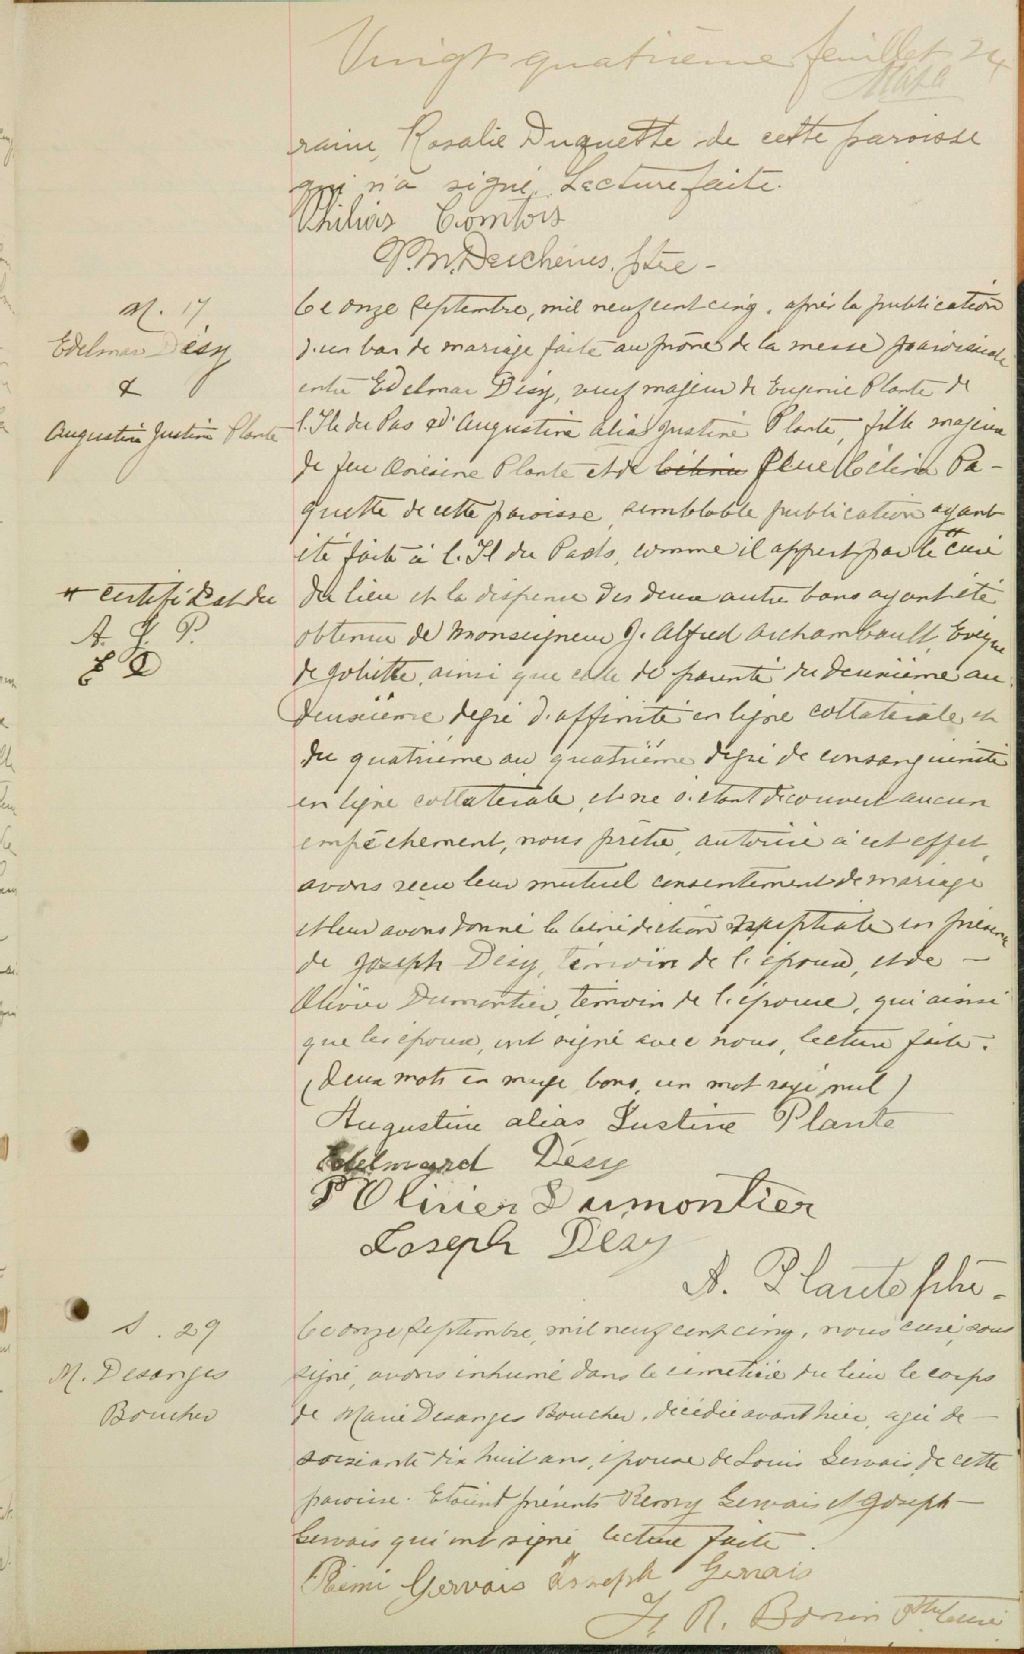 Vingt quatrième feuillet 24
raine, Rosalie Duquette de cette paroisse
qui n'a signé. Lecture faite.
Philias Comtois
P.M. Deschenes. ptre -
M. 17
Edelmar Désy
&
Augustine Justine Plante
Le onze septembre, mil neuf cent cinq, après la publication
d'un ban de mariage faite au prône de la messe paroissiale
entre Edelmar Désy, veuf majeur de Eugenie Plante de
l'Ile du Pas et d'Augustine alias Justine Plante, fille majeure
de feu Onésime Plante et de Célina feue Célina Pa-
quette de cette paroisse, semblable publication ayant
été faite à l'Il du Pads, comme il appert par le # curé
# certificat du
A. J. P.
E D
du lieu et la dispense des deux autre bans ayant été
obtenue de Monseigneur J. Alfred Archambault, Evêque
de Joliette, ainsi que celle de parenté du deuxième au
deuxième degré d'affinité en ligne collatérale et
du quatrième au quatrième degré de consanguinité
en ligne collatérale, et ne s'étant découvert aucun
empêchement, nous prêtre, autorisé à cet effet,
avons reçu leur mutuel consentement de mariage
et leur avons donné la bénédiction nuptiale en présence
de Joseph Désy, témoin de l'époux, et de -
Olivier Dumontier, témoin de l'épouse, qui ainsi
que les époux, ont signé avec nous, lecture faite.
(deux mots en marge bons, un mot rayé nul)
Augustine alias Justine Plante
Edelmard Désy
P Olivier Dumontier
Joseph Désy
A. Plante ptre -
S. 29
M. Desanges
Boucher
Le onze septembre, mil neuf cent cinq, nous curé, sous
signé, avons inhumé dans le cimetière du lieu le corps
de Marie Desanges Boucher, décédée avant hier, agée de -
soixante dix huit ans, épouse de Louis Gervais, de cette
paroisse. Etaient présents Remy Gervais et Joseph -
Gervais qui ont signé, lecture faite.
Rémi Gervais Joseph Gervais
F. R. Bonin Ptre Curé